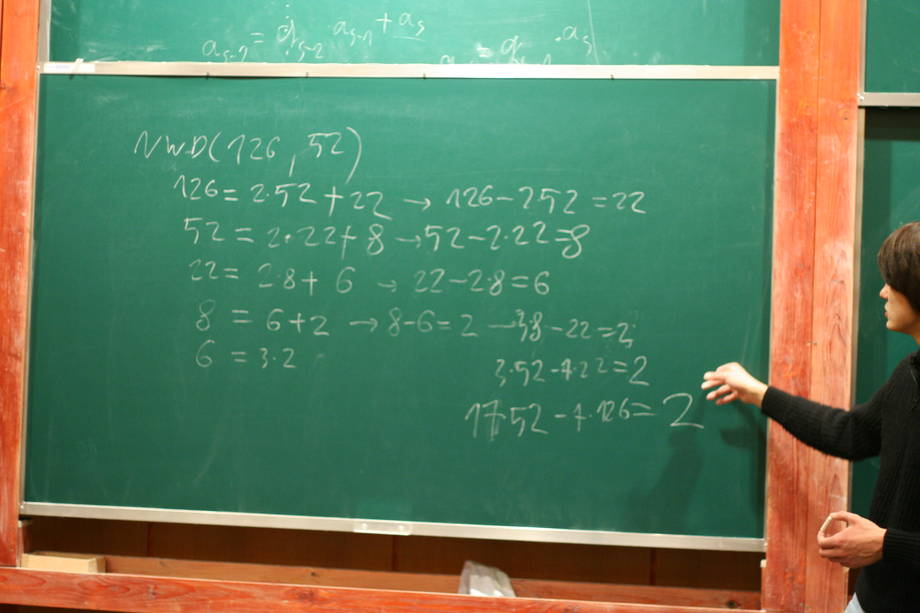 a_{s-2} = q_{s-2} a_{s-1} + a_s
= q · a_s
NWD(126, 52)
126 = 2·52 + 22 → 126 - 2 52 = 22
52 = 2·22 + 8 → 52 - 2·22 = 8
22 = 2·8 + 6 → 22 - 2·8 = 6
8 = 6 + 2 → 8 - 6 = 2 → 3·8 - 22 = 2
6 = 3·2
3·52 - 7·22 = 2
17·52 - 7·126 = 2